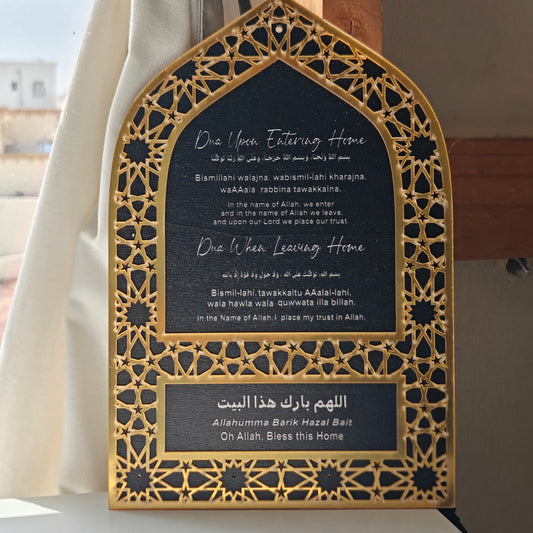 Dua Upon Entering Home
بسم الله ولجنا، وبسم الله خرجنا، وعلى الله ربنا توكلنا
Bismillahi walajna, wabismil-lahi kharajna,
waAAala rabbina tawakkalna.
In the name of Allah, we enter
and in the name of Allah we leave,
and upon our Lord we place our trust.
Dua When Leaving Home
بسم الله، توكلت على الله ، ولا حول ولا قوة إلا بالله
Bismil-lahi, tawakkaltu AAalal-lahi,
wala hawla wala quwwata illa billah.
In the Name of Allah, I place my trust in Allah,
اللهم بارك هذا البيت
Allahumma Barik Hazal Bait
Oh Allah, Bless this Home